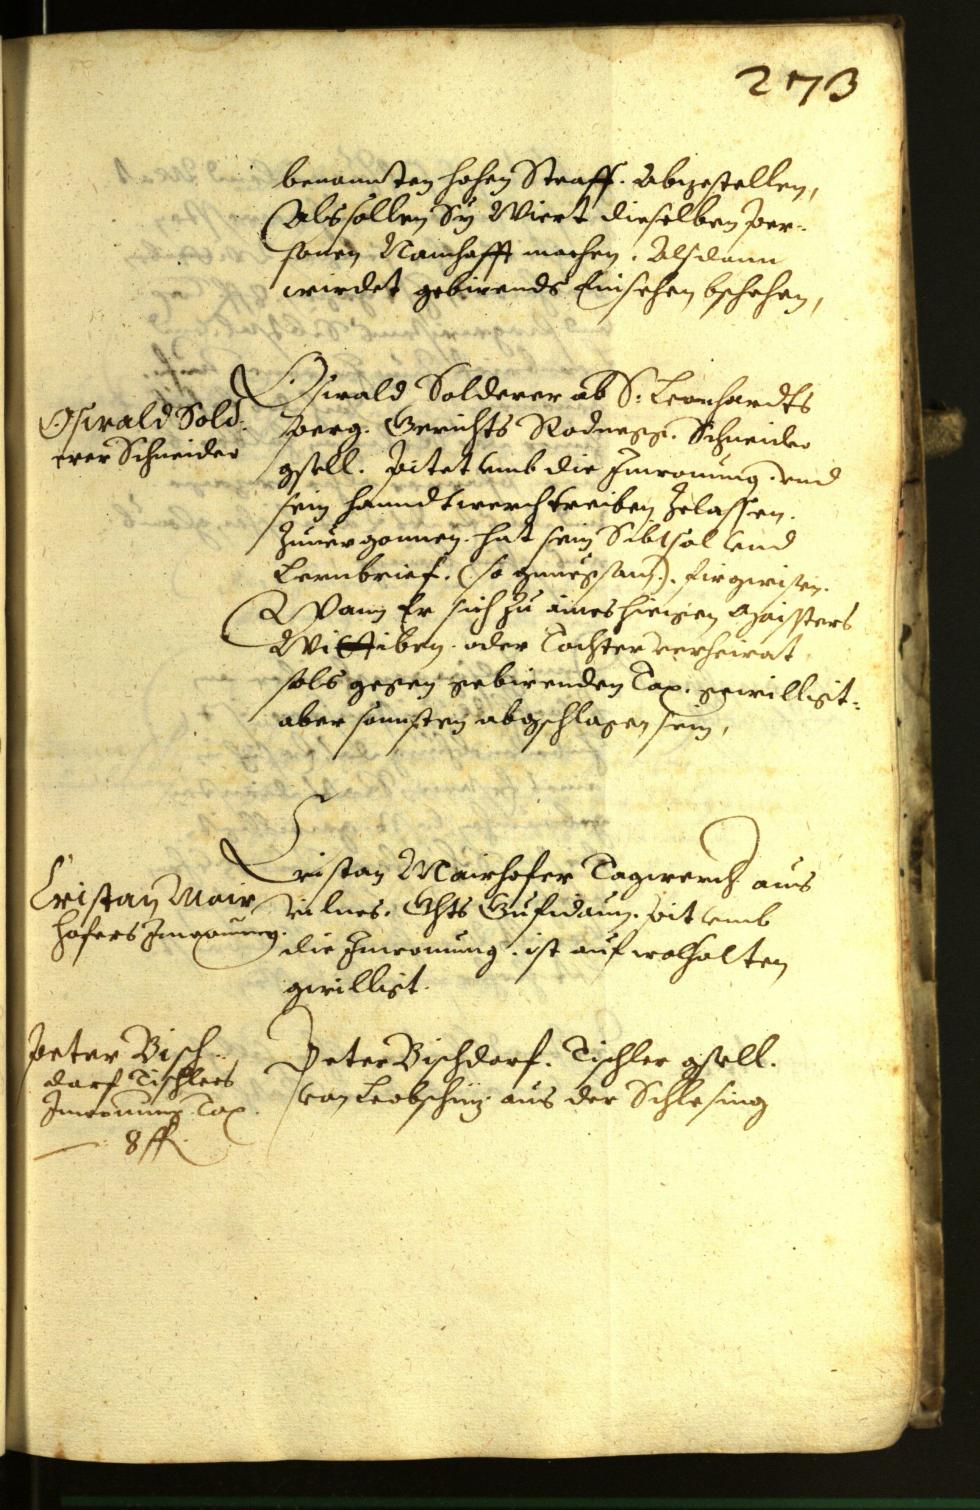 273
benannten hohen Straff. Abzestellen,
Als sollen Sy Wiert dieselben Per-
sonen Namhafft machen. Alsdann
wirdet gebirends Einsehen bschehen,
Oswald Sold-
erer Schneider
Oswald Solderer ab S: Leonhardts
Perg. Gerichts Rodnegg. Schneider
gsell. Pitet umb die Inwonung. und
sein hanndtwerch treiben Zelassen.
Zuvergonnen. hat sein Sibtsal und
Lernbrief. (so gnuegsam). firgwisen.
Wann Er sich zu aines hiesigen Maisters
Wittiben. oder Tochter verheirat
sols gegen gebirenden Tax. gewilligt
aber sonnsten abgschlagen sein,
Cristan Mair
hofers Inwonung.
Cristan Mairhofer Tagwerch aus
Vilnes. Ghts Gufidaun. pit umb
die Inwonung. ist auf wolhalten
gwilligt.
Peter Bisch-
dorf Tischlers
Inwonung Tax.
8 fl.
Peter Bischdorf. Tischler gsell.
von Leobschüz aus der Schlesing